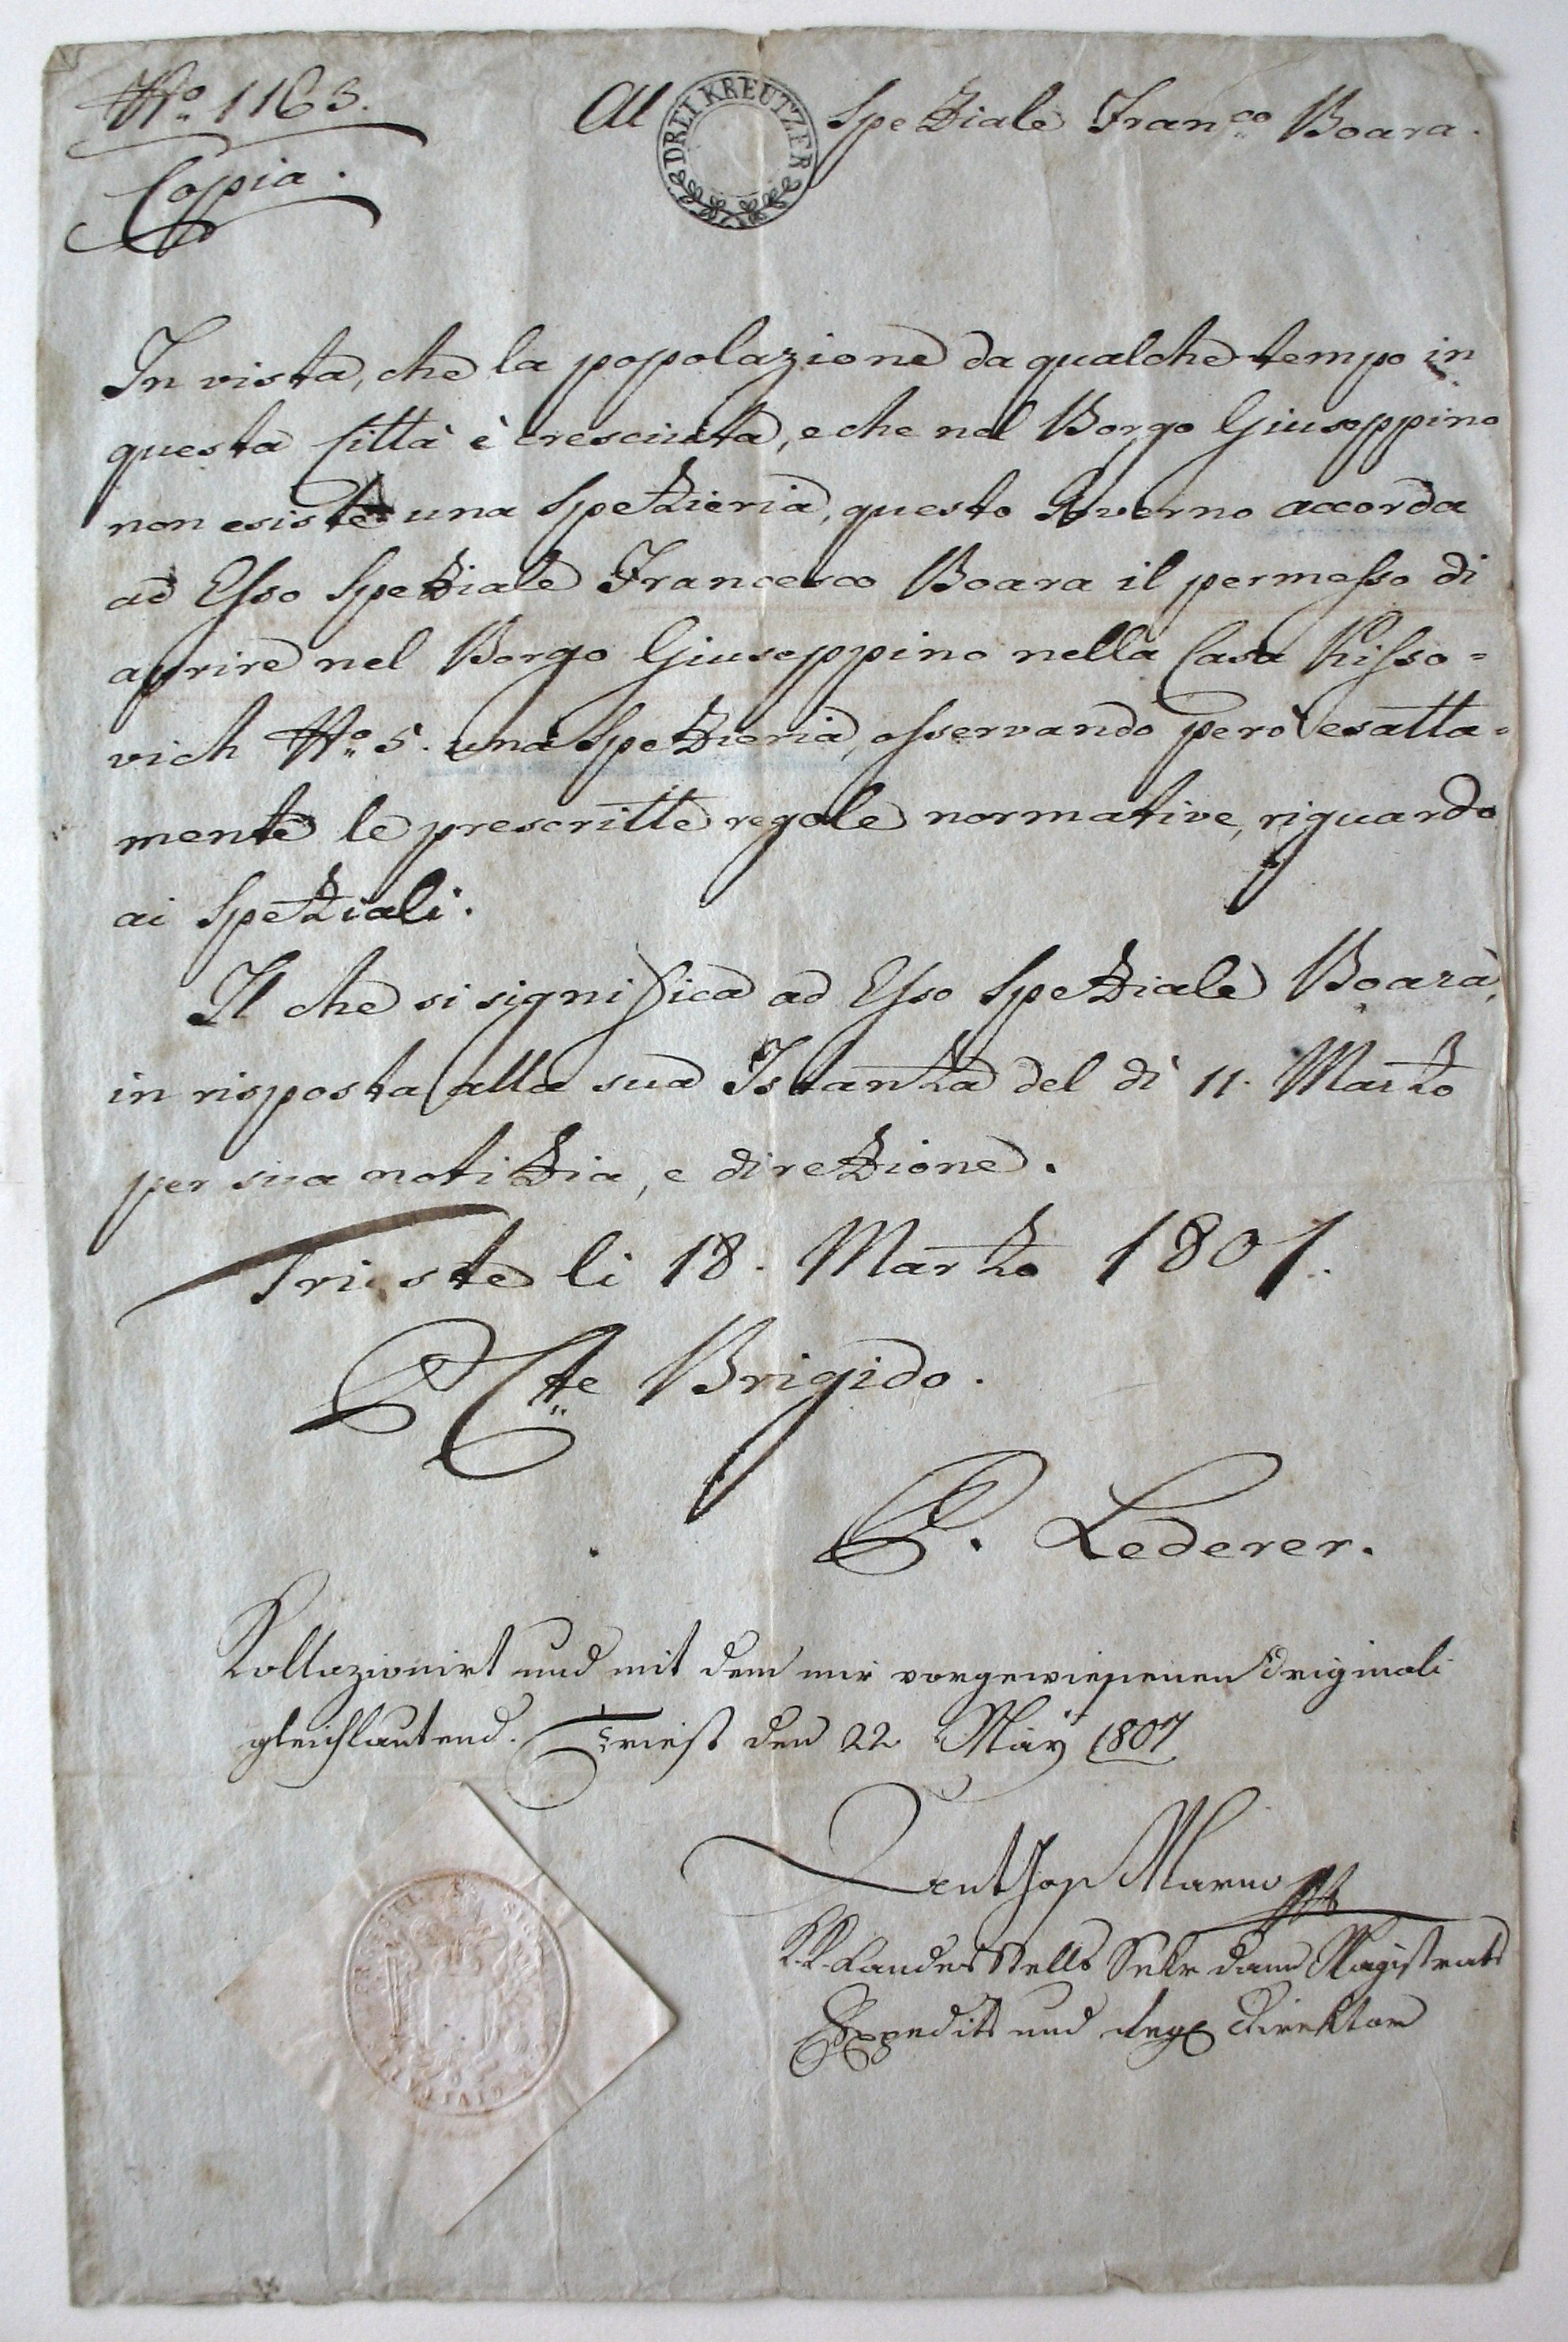 No. 1163.
Al Speziale Fran.co Boara.
DREI KREUTZER
Copia.
In vista, che la popolazione da qualche tempo in
questa Città è cresciuta, e che nel Borgo Giuseppino
non esiste una Spezieria, questo Governo accorda
ad Esso Speziale Francesco Boara il permesso di
aprire nel Borgo Giuseppino nella Casa Risso=
vich No. 5. una Spezieria, osservando però esatta=
mente le prescritte regole normative, riguardo
ai Speziali.
Il che si significa ad Esso Speziale Boara,
in risposta alla sua Istanza del dì 11. Marzo
per sua notizia, e direzione.
Trieste li 18. Marzo 1801.
Cte Brigido.
P. Lederer.
Kollazionirt und mit dem mir vorgewiesenen Originali
gleichlautend. Triest den 22 May 1807
K.K. Landesstells Sekr dann Magistrats
Expedits und Direktor